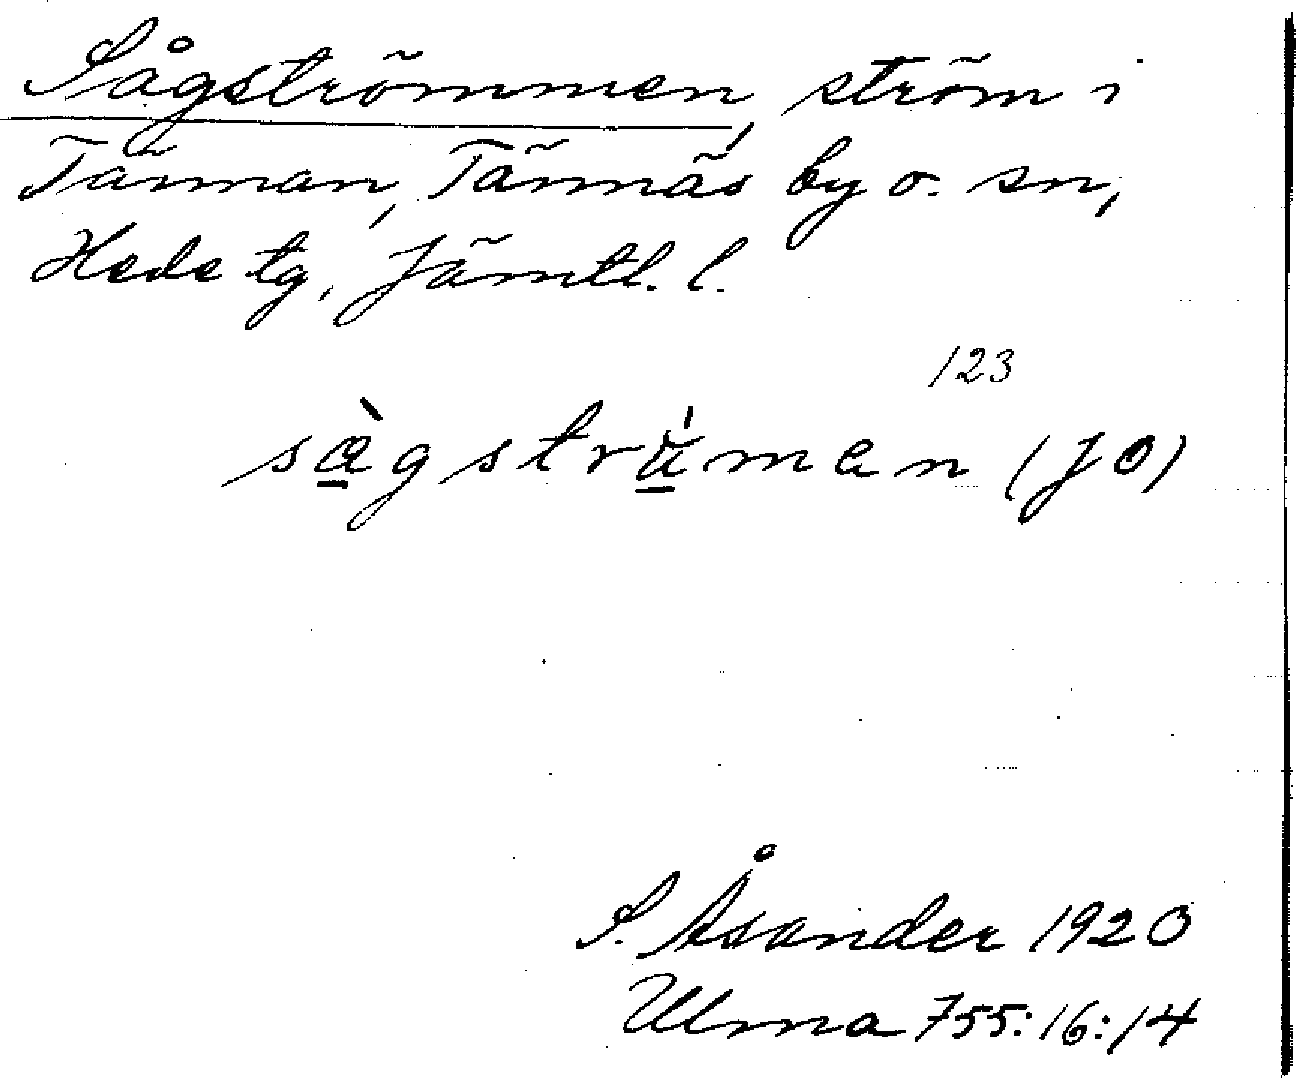 Sågströmmen, ström i
Tännan, Tännäs by o. sn,
Hede tg, Jämtl. l.
123
sàgströ̀men (JO)
S. Åsander 1920
Ulma 755:16:14